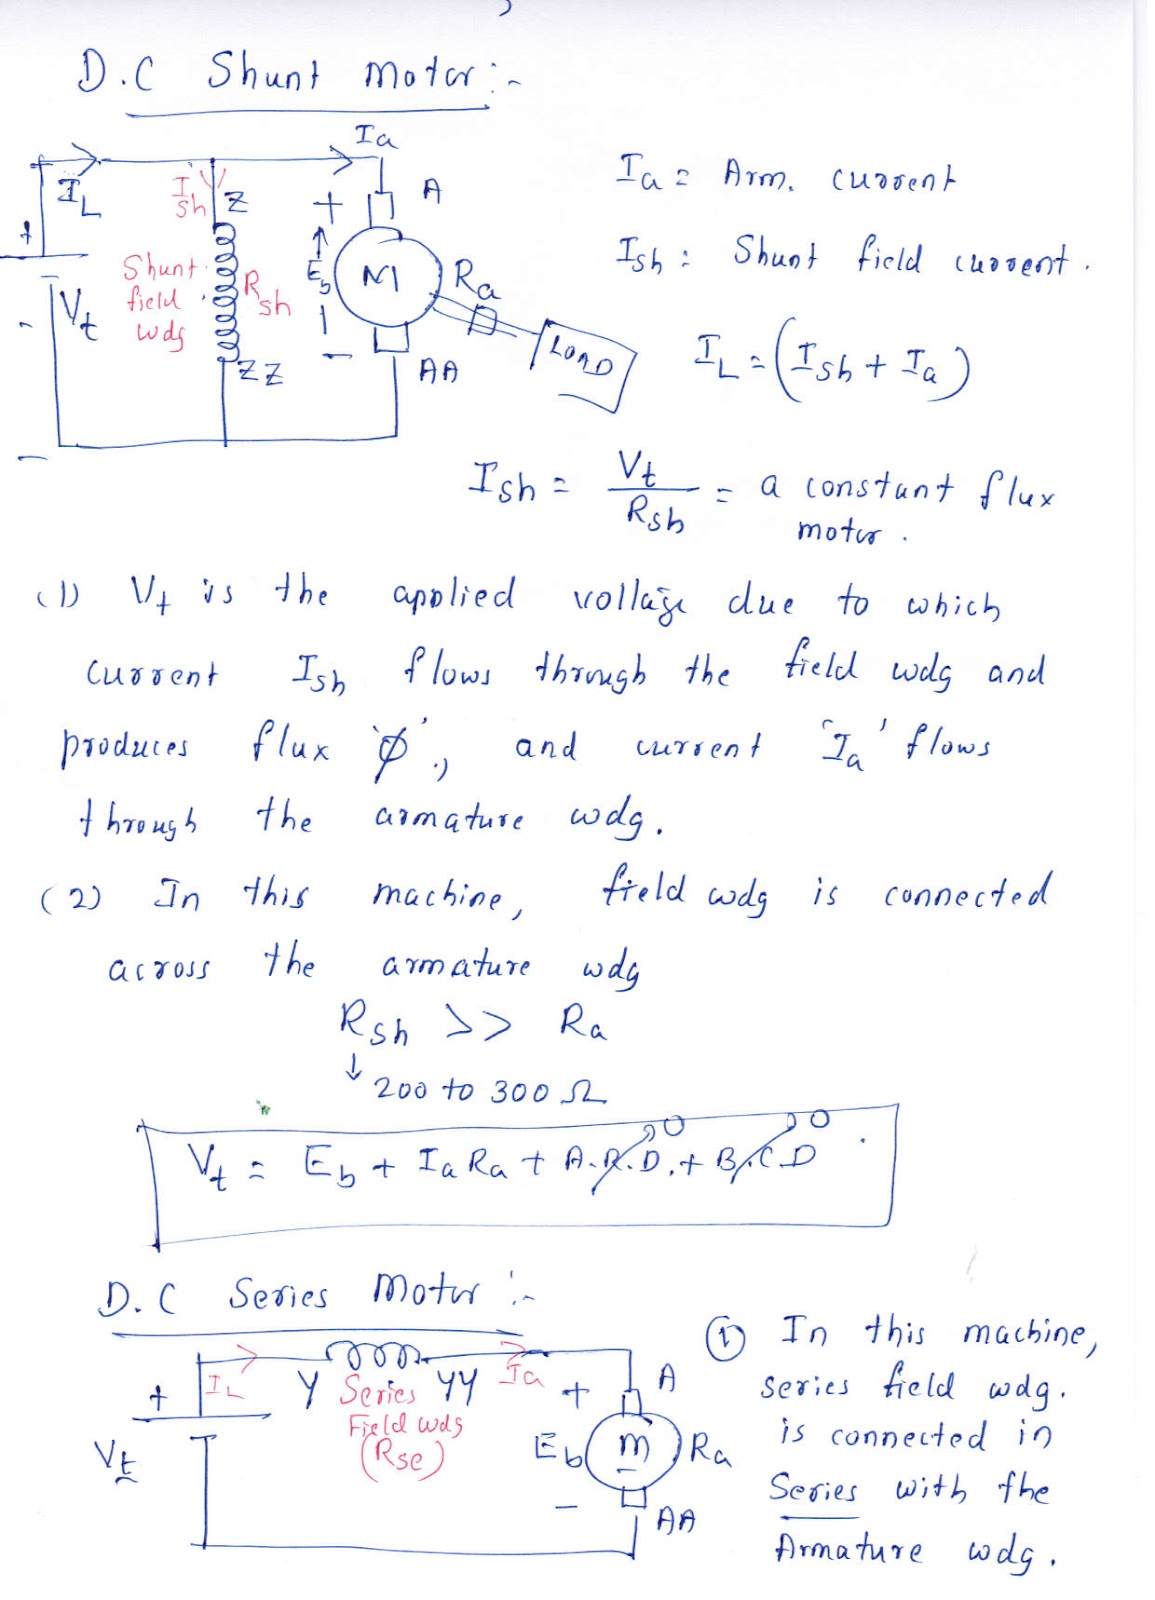 D.C Shunt Motor :-
Ia
IL
Ish
Z
+
A
+
Eb
M
Ra
Shunt
field
wdg
Rsh
Vt
-
-
ZZ
AA
LOAD
-
Ia = Arm. current
Ish = Shunt field current.
IL = (Ish + Ia)
Ish = Vt / Rsh = a constant flux
motor.
(1) Vt is the applied voltage due to which
current Ish flows through the field wdg and
produces flux 'φ', and current 'Ia' flows
through the armature wdg.
(2) In this machine, field wdg is connected
across the armature wdg
Rsh >> Ra
↓ 200 to 300 Ω
Vt = Eb + IaRa + A.R.D. + B.C.D
0 0
D.C Series Motor :-
IL
Y Series YY
Ia
Field wdg
(Rse)
+
Vt
+
A
Eb
M
Ra
-
AA
① In this machine,
series field wdg.
is connected in
Series with the
Armature wdg.